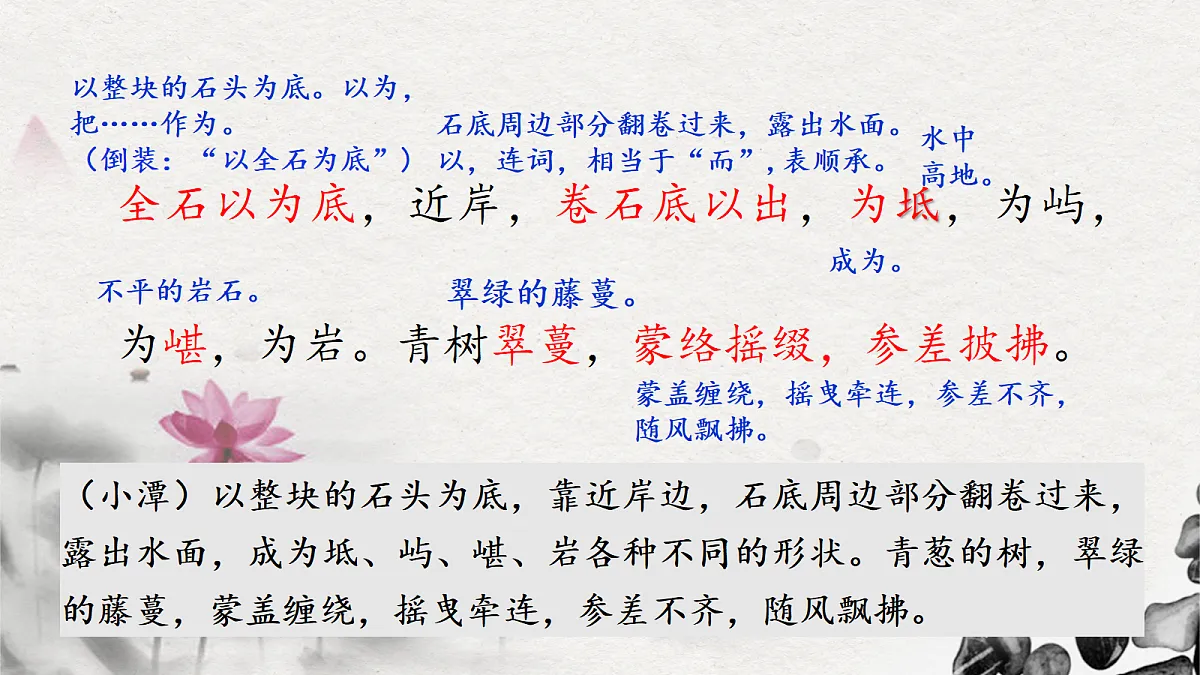 以整块的石头为底。以为，
把……作为。
（倒装：“以全石为底”）
石底周边部分翻卷过来，露出水面。
以，连词，相当于“而”，表顺承。
水中
高地。
全石以为底，近岸，卷石底以出，为坻，为屿，
成为。
不平的岩石。
翠绿的藤蔓。
为嵁，为岩。青树翠蔓，蒙络摇缀，参差披拂。
蒙盖缠绕，摇曳牵连，参差不齐，
随风飘拂。
（小潭）以整块的石头为底，靠近岸边，石底周边部分翻卷过来，
露出水面，成为坻、屿、嵁、岩各种不同的形状。青葱的树，翠绿
的藤蔓，蒙盖缠绕，摇曳牵连，参差不齐，随风飘拂。